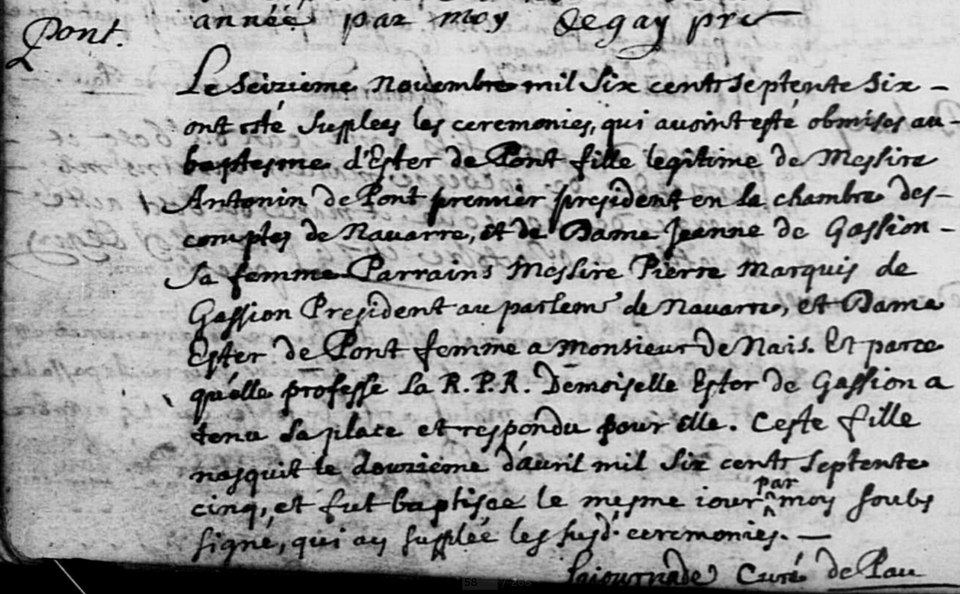 année par moy Degay pre
Pont.
Le seizieme novembre mil six cents septente six -
ont esté supplees les ceremonies, qui avoint esté obmises au -
baptesme d'Ester de Pont fille legitime de Messire
Antonin de Pont premier president en la chambre des -
comptes de Navarre, et de Dame Jeanne de Gassion -
sa femme Parrains Messire Pierre Marquis de
Gassion President au parlem^t de Navarre, et Dame
Ester de Pont femme a monsieur de Nais. Et parce
qu'elle professe la R.P.R. Demoiselle Ester de Gassion a
tenu sa place et respondu pour elle. Ceste fille
nasquit le douzieme d'avril mil six cents septente
cinq, et fut baptisee le mesme iour par moy soubs
signé, qui ay supplée les susd. ceremonies. -
Lajournade Curé de Pau